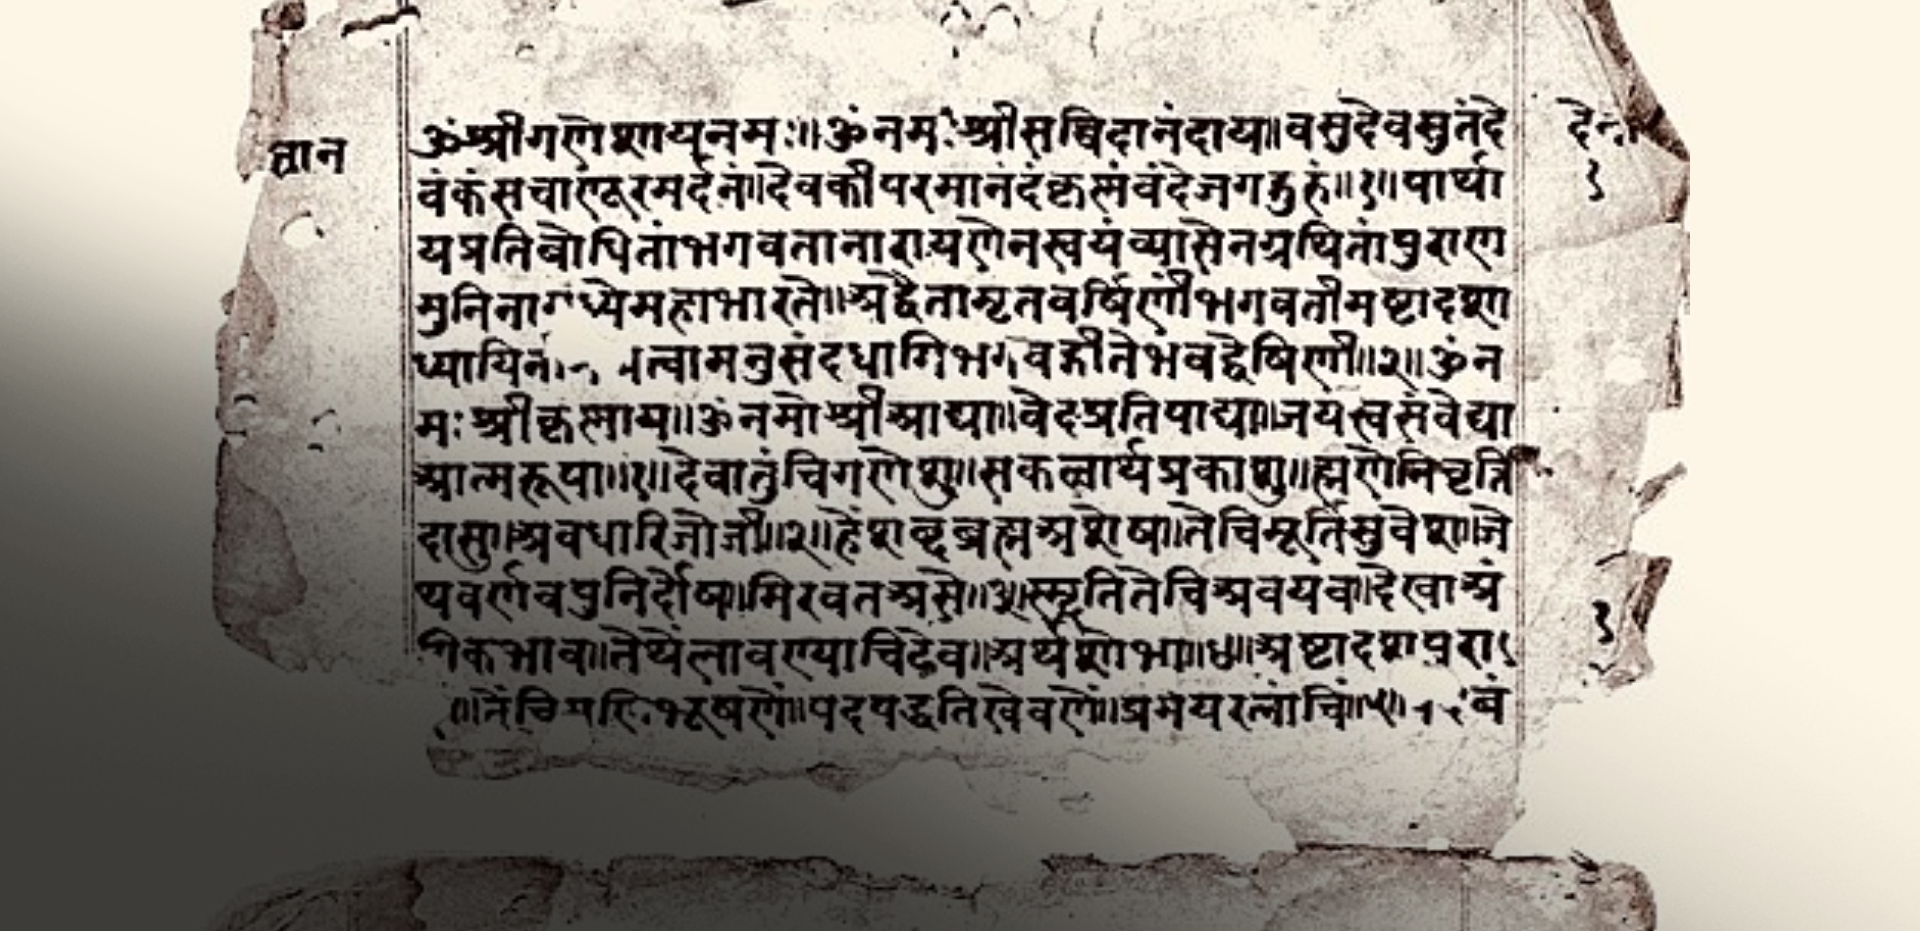 ॐ श्रीगणेशायनमः॥ॐ नमः श्रीसच्चिदानंदाय॥वसुदेवसुतंदे
वंकंसचाणूरमर्दनं॥देवकीपरमानंदंकृष्णंवंदेजगद्गुरुं॥१॥पार्था
यप्रतिबोधितांभगवतानारायणेनस्वयंव्यासेनग्रथितांपुराण
मुनिना महाभारते॥अद्वैतामृतवर्षिणींभगवतीमष्टादशा
त्वामनुसंदधामिभगवद्गीतेभवद्वेषिणीं॥२॥ॐ न
मः श्रीकृष्णाय॥ॐ नमो श्रीआद्या॥वेदप्रतिपाद्या॥जयस्वसंवेद्या
आत्मरूपा॥१॥देवातुंचिगणेशु॥सकळार्थप्रकाशु॥ह्मणेनिवृत्ति
दासु॥अवधारिजोजी॥२॥हेंशब्दब्रह्मअशेषा॥तेचिमूर्तिसुवेशा॥जे
थवर्णवपुनिर्दोषा॥मिरवतअसे॥३॥स्मृतितेचिअवयव॥देखाअं
गिकभाव॥तेथेंलावण्याचिठेव॥अर्थशोभा॥४॥अष्टादशपुरा
पदपद्धतिखेवणें॥प्रमेयरत्नांचिं॥५॥